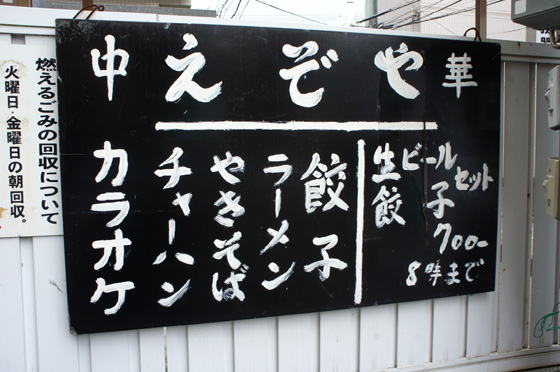 中えぞや華
生ビール
餃子セット
700-
8時まで
餃子
ラーメン
やきそば
チャーハン
カラオケ
燃えるごみの回収について
火曜日・金曜日の朝回収。